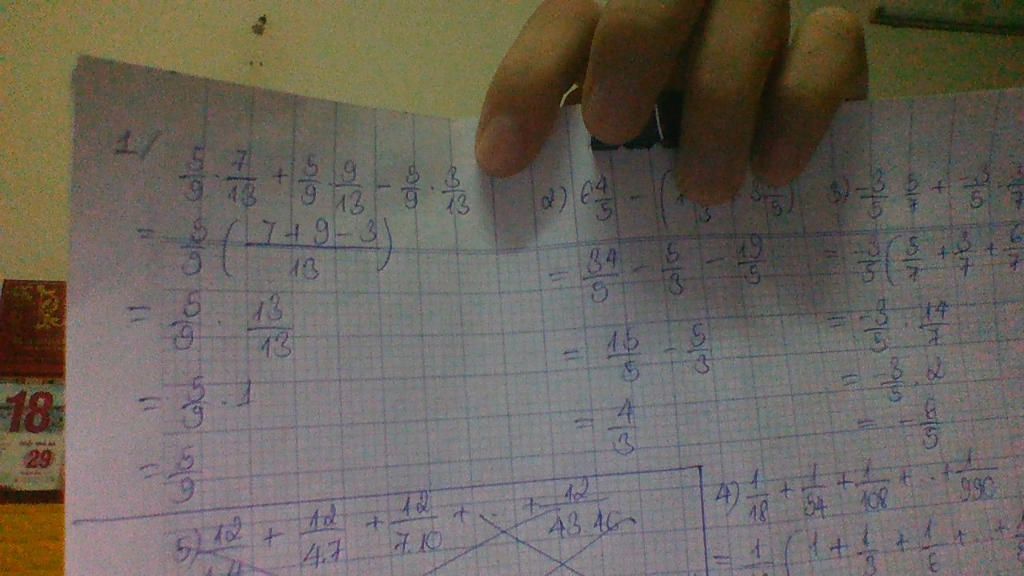 1/ 5/9 · 7/13 + 5/9 · 9/13 - 5/9 · 3/13
= 5/9 ( (7+9-3)/13 )
= 5/9 · 13/13
= 5/9 · 1
= 5/9
2) 6 4/5 - (
= 34/5 - 5/3 - 19/5
= 15/5 - 5/3
= 4/3
3) -3/5 · 5/7 + -3/5 ·
= -3/5 ( 5/7 + 3/7 + 6/7
= -3/5 · 14/7
= -3/5 · 2
= -6/5
4) 1/18 + 1/54 + 1/108 + .. + 1/990
= 1/ ( 1 + 1/3 + 1/6 + .. +
5) 12/1.4 + 12/4.7 + 12/7.10 + .. + 12/43.46
18
29